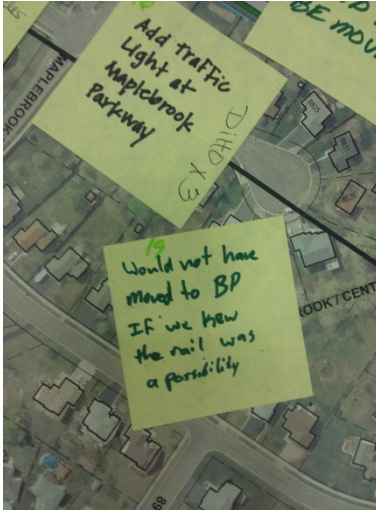 BE MOV
Add traffic
Light at
Maplebrook
Parkway
Ditto x3
MAPLEBROOK
19
Would not have
moved to BP
If we knew
the rail was
a possibility
OOK / CENT
89